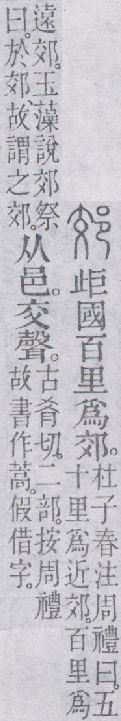 郊 歫國百里爲郊。
杜子春注周禮曰。五
十里爲近郊。百里爲
遠郊。玉藻說郊祭
曰。於郊故謂之郊。
从邑。交聲。
古肴切。二部。按周禮
故書作蒿。假借字。